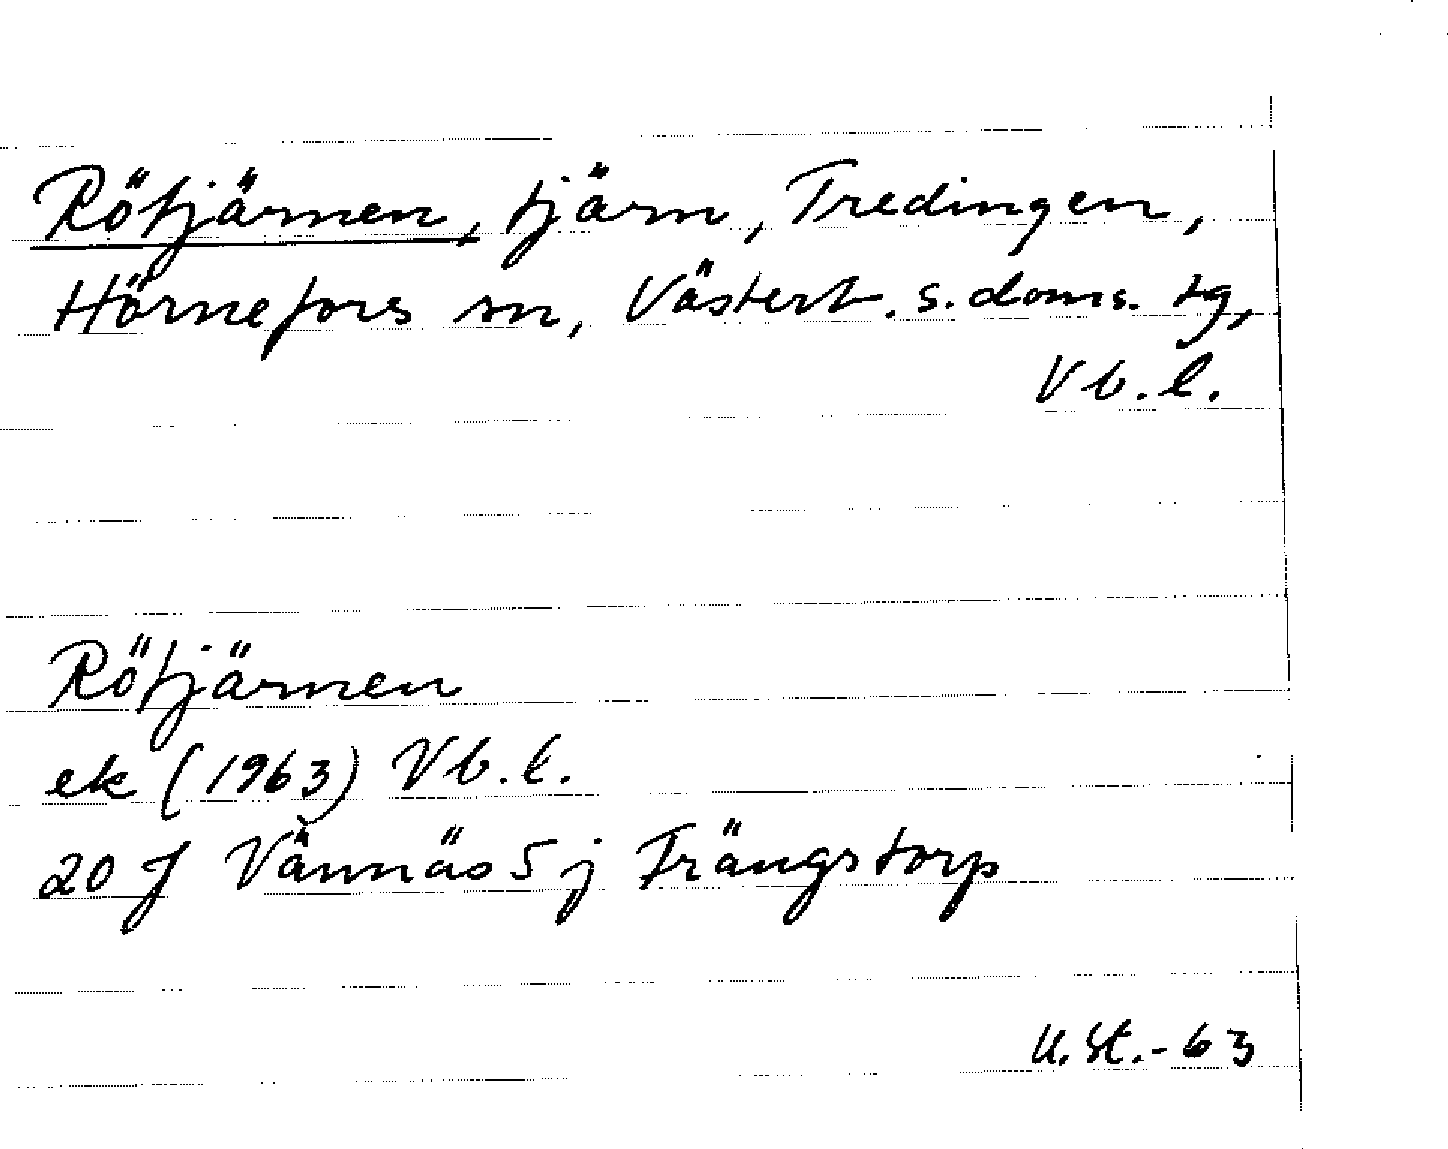 Rötjärnen, tjärn, Tredingen,
Hörnefors sn, Västerb. s. doms. tg,
Vb. l.
Rötjärnen
ek (1963) Vb. l.
20 J Vännäs 5 j Trängstorp
U. St. - 63